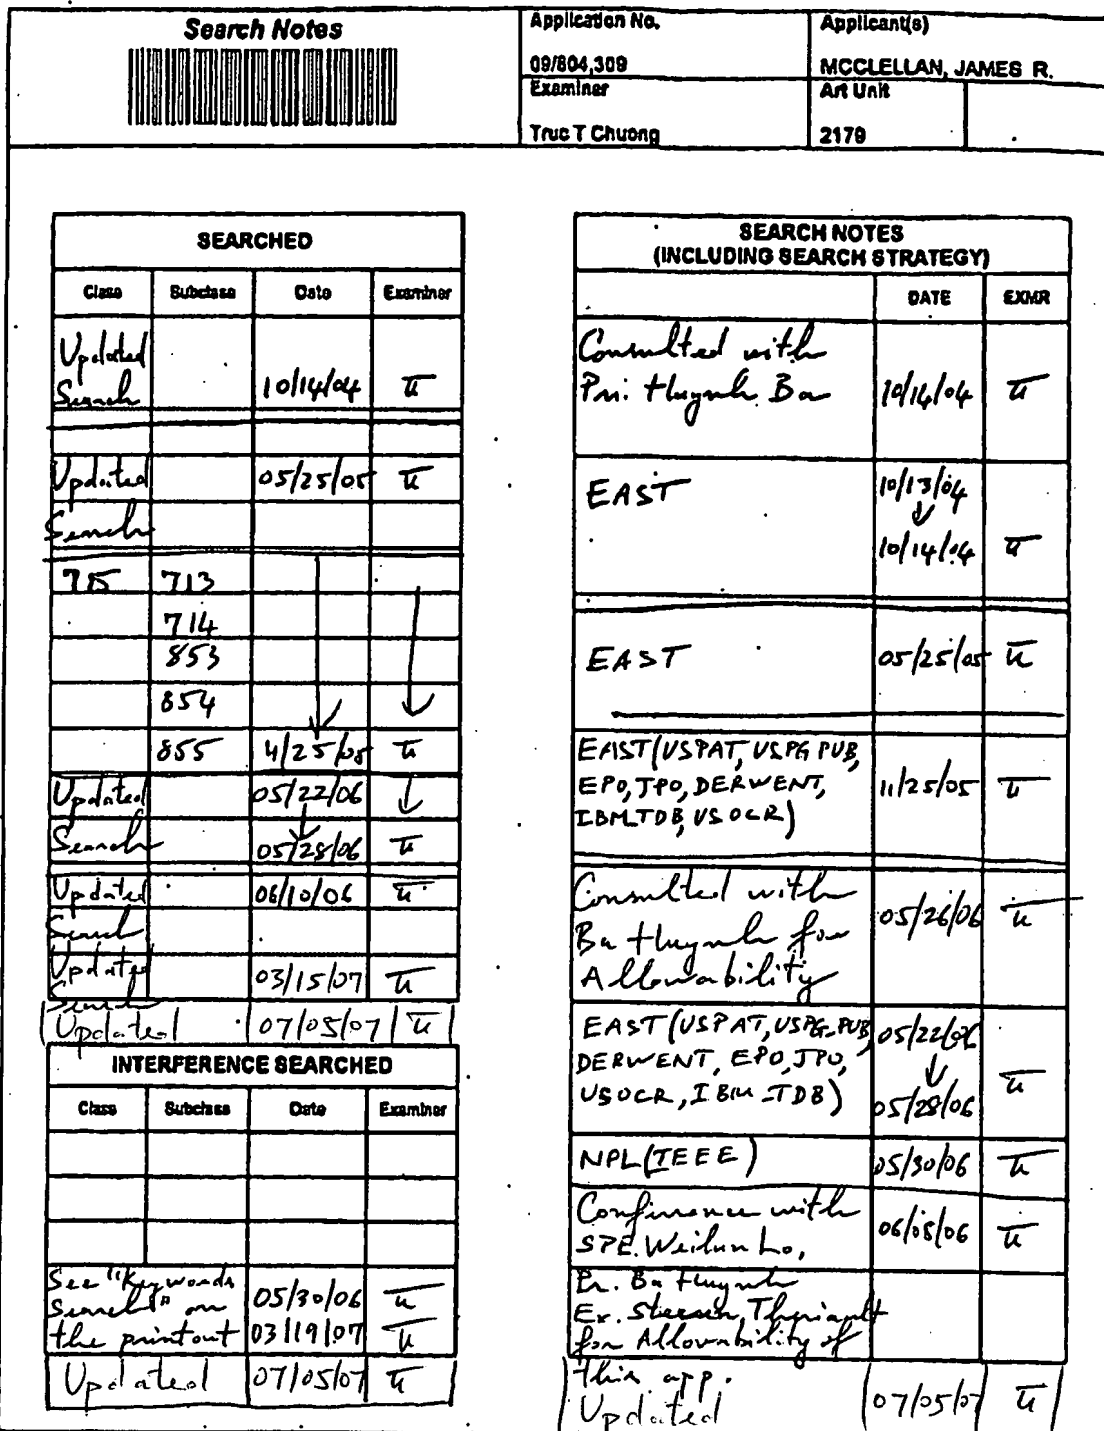 Search Notes
Application No.
Applicant(s)
09/804,309
MCCLELLAN, JAMES R.
Examiner
Art Unit
Truc T Chuong
2179
SEARCHED
Class Subclass Date Examiner
Updated
Search 10/14/04 TC
Updated 05/25/05 TC
Search
715 713
714
853
854
855 4/25/05 TC
Updated 05/22/06
Search 05/28/06 TC
Updated 06/10/06 TC
Search
Updated 03/15/07 TC
Search
Updated 07/05/07 TC
INTERFERENCE SEARCHED
Class Subclass Date Examiner
See "Keywords
Search" on 05/30/06 TC
the printout 03/19/07 TC
Updated 07/05/07 TC
SEARCH NOTES
(INCLUDING SEARCH STRATEGY)
DATE EXMR
Consulted with
Pri. Huynh Ba 10/14/04 TC
EAST 10/13/04
10/14/04 TC
EAST 05/25/05 TC
EAST (USPAT, USPG PUB,
EPO, JPO, DERWENT, 11/25/05 TC
IBM_TDB, USOCR)
Consulted with
Ba Huynh for 05/26/06 TC
Allowability
EAST (USPAT, USPG_PUB, 05/22/06
DERWENT, EPO, JPO,
USOCR, IBM_TDB) 05/28/06 TC
NPL (IEEE) 05/30/06 TC
Conference with
SPE. Weilun Lo, 06/08/06 TC
Pr. Ba Huynh
Ex. Theriault
for Allowability of
this app.
Updated 07/05/07 TC